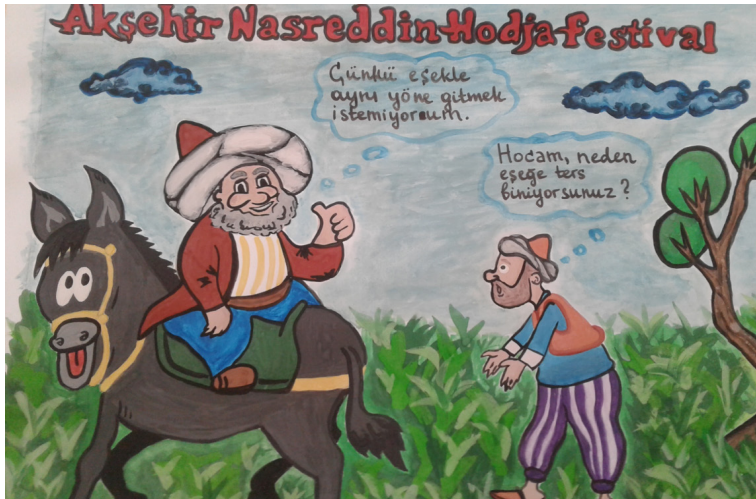 Akşehir Nasreddin Hodja festival
Çünkü eşekle
aynı yöne gitmek
istemiyorum.
Hocam, neden
eşeğe ters
biniyorsunuz?